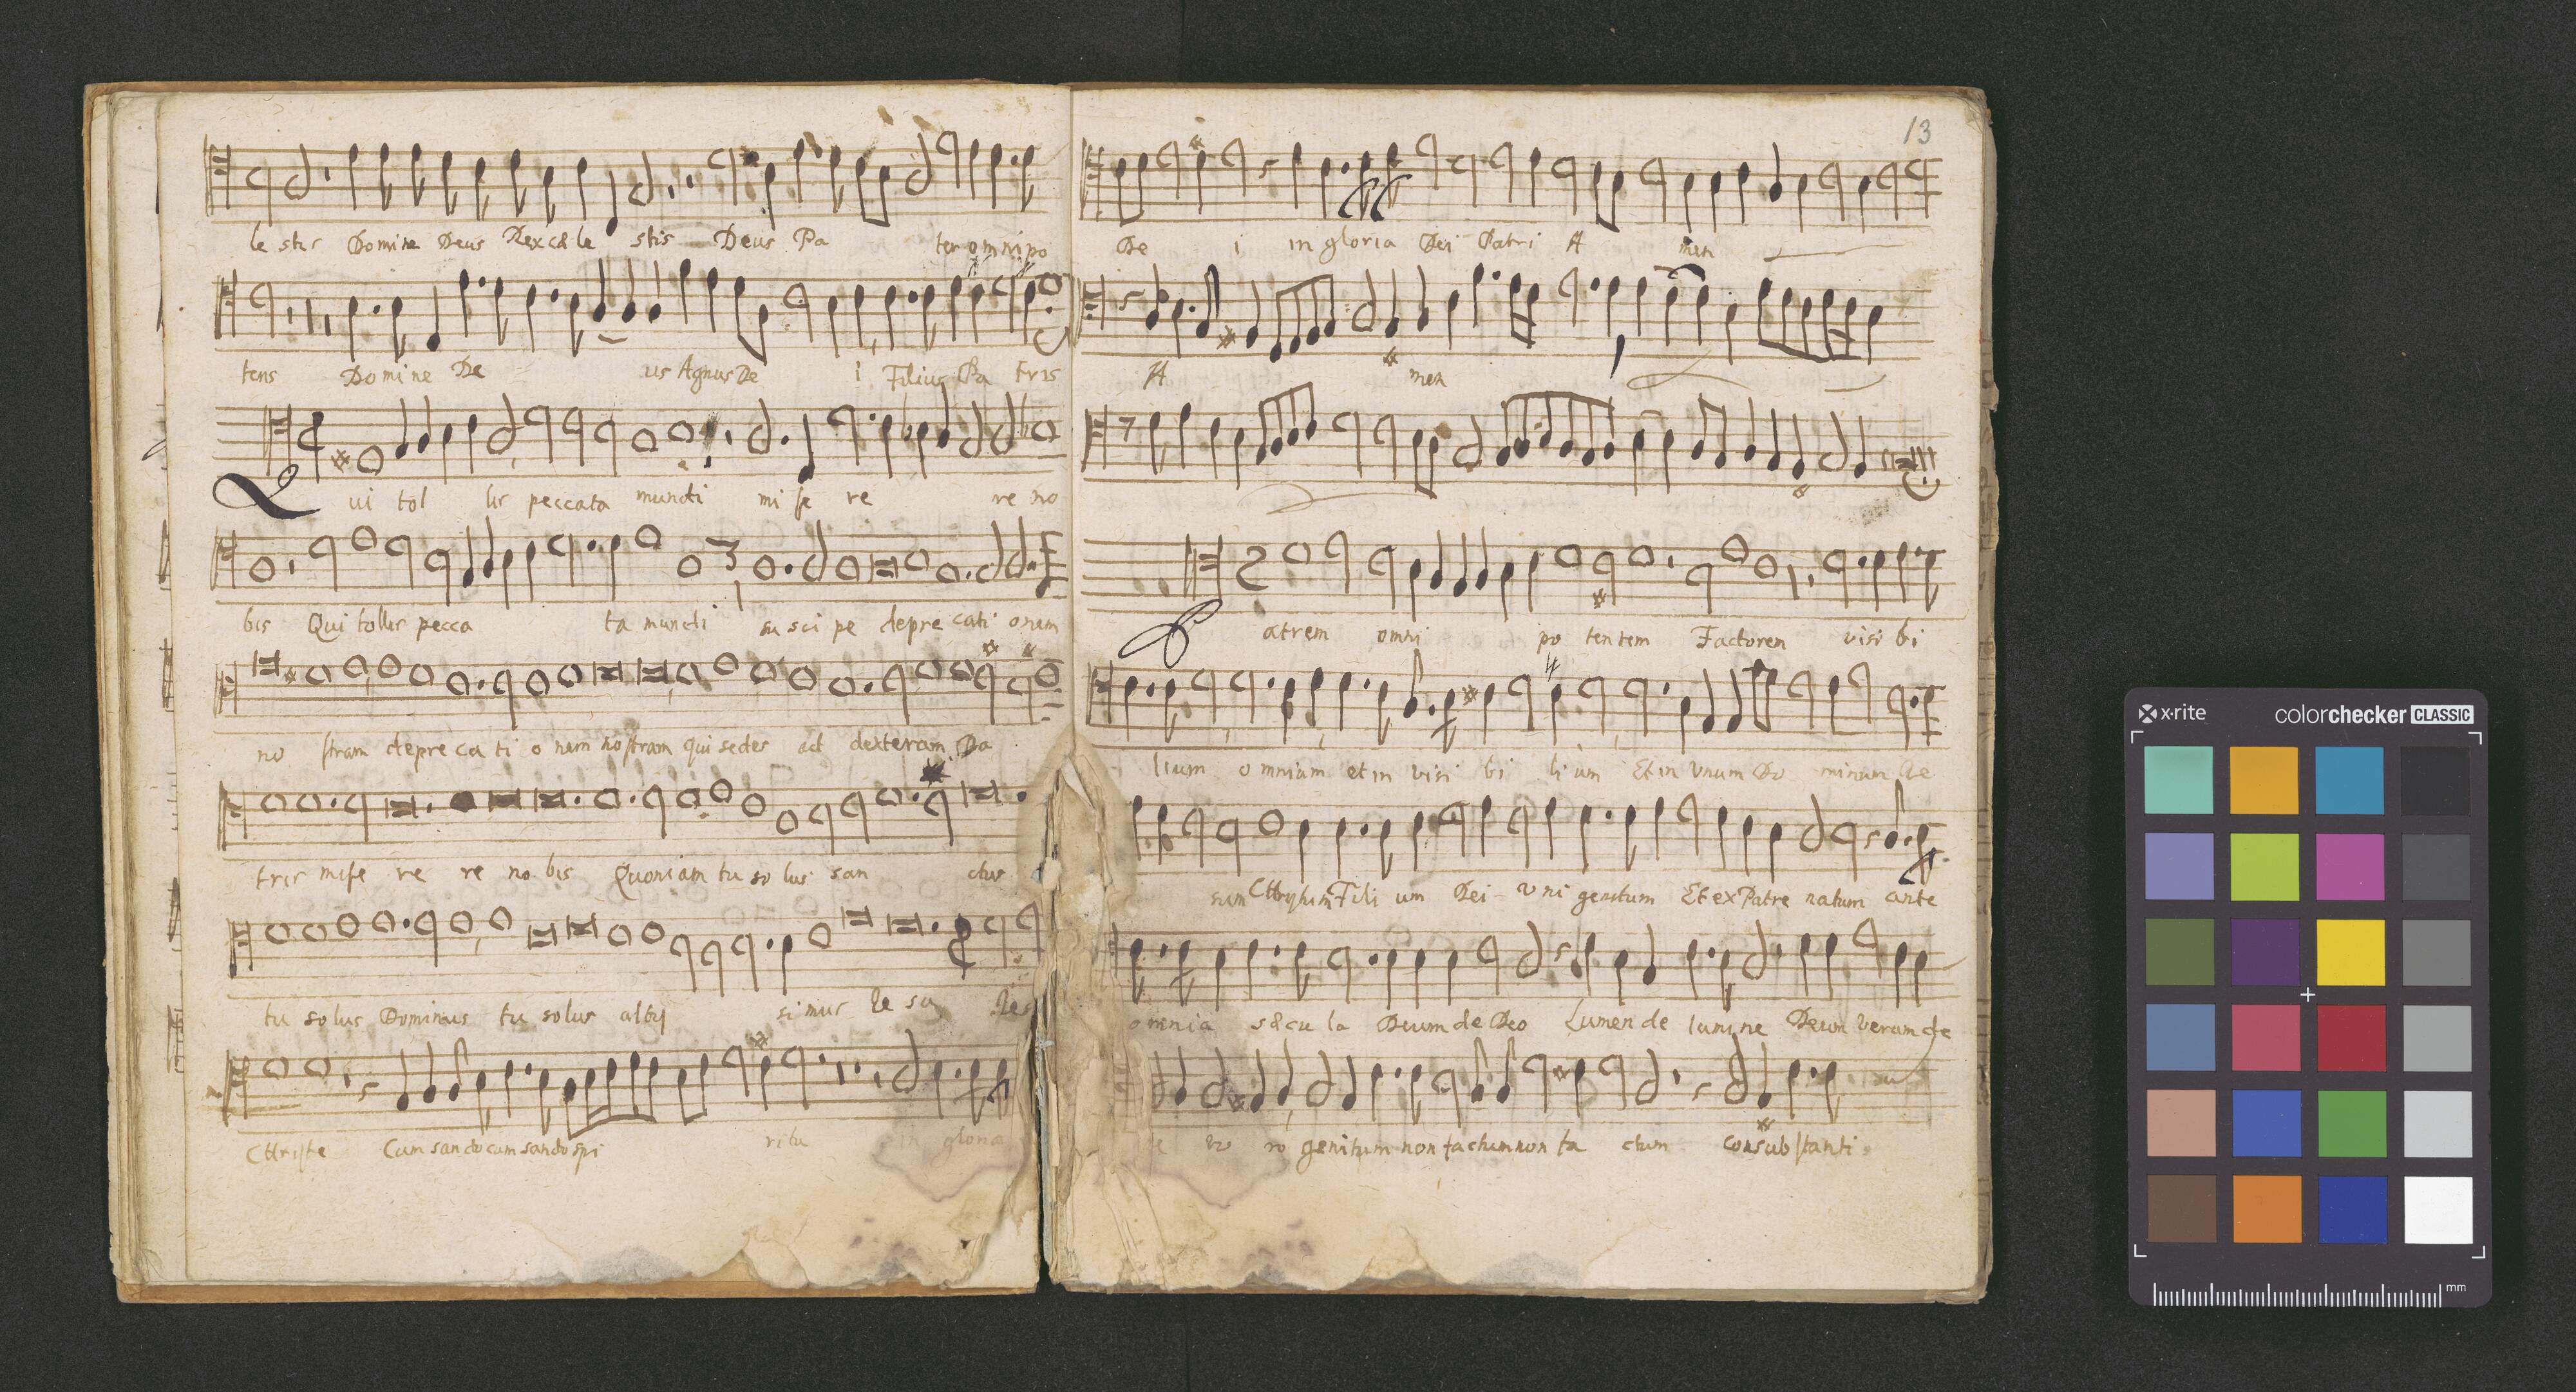 le stis Domine Deus Rex cæ le stis Deus Pa ter omnipo
tens Domine De us Agnus De i Filius Pa tris
Qui tol lis peccata mundi mi se re re no
bis Qui tollis pecca ta mundi su sci pe depre cati onem
no stram depre ca ti o nem nostram qui sedes ad dexteram Pa
tris mise re re no bis Quoniam tu so lus san ctus
tu solus Dominus tu solus altis si mus Ie su
Christe Cum sancto cum sancto spi ritu in gloria
13
De i in gloria Dei Patri A men
A men
Patrem omni po tentem Factorem visi bi
lium omnium et in visi bi li um Et in Unum Do minum Ie
sum Christum Fili um Dei Uni genitum Et ex Patre natum ante
omnia sæcu la Deum de Deo Lumen de lumine Deum verum de
ve ro genitum non factum non fa ctum consubstanti
x-rite
colorchecker CLASSIC
mm